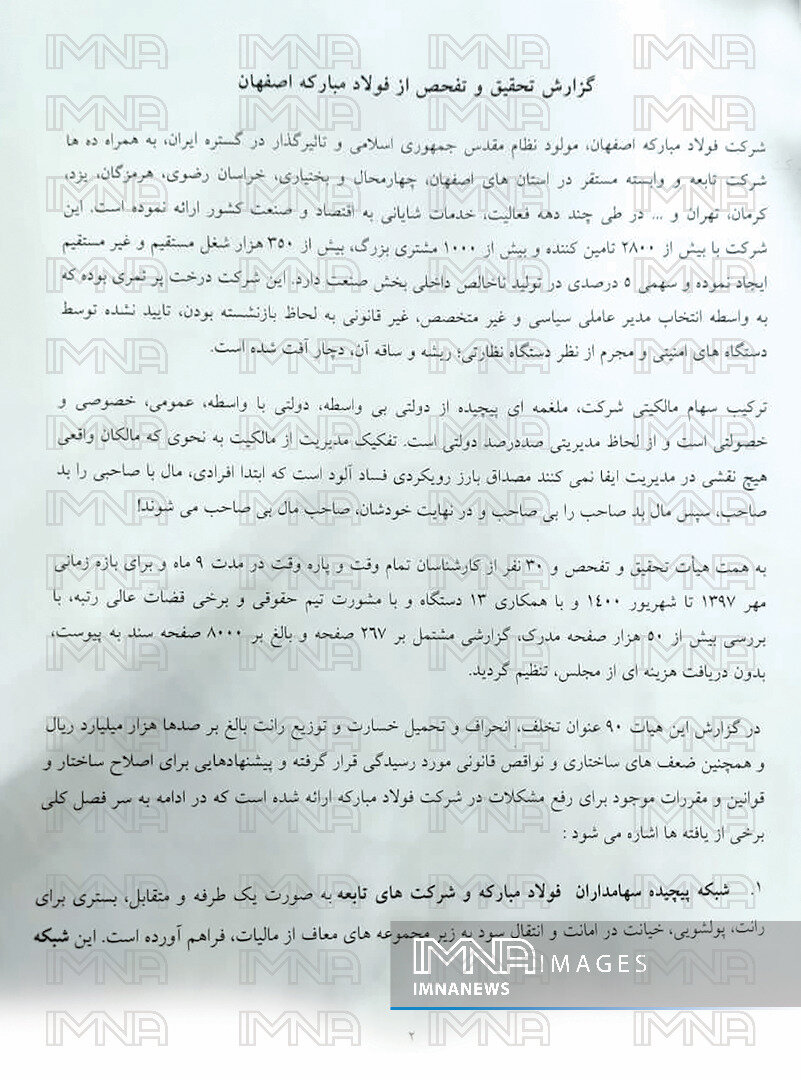 گزارش تحقیق و تفحص از فولاد مبارکه اصفهان
شرکت فولاد مبارکه اصفهان، مولود نظام مقدس جمهوری اسلامی و تاثیرگذار در گستره ایران، به همراه ده ها
شرکت تابعه و وابسته مستقر در استان های اصفهان، چهارمحال و بختیاری، خراسان رضوی، هرمزگان، یزد،
کرمان، تهران و ... در طی چند دهه فعالیت، خدمات شایانی به اقتصاد و صنعت کشور ارائه نموده است. این
شرکت با بیش از ۲۸۰۰ تامین کننده و بیش از ۱۰۰۰ مشتری بزرگ، بیش از ۳۵۰ هزار شغل مستقیم و غیر مستقیم
ایجاد نموده و سهمی ۵ درصدی در تولید ناخالص داخلی بخش صنعت دارد. این شرکت درخت پر ثمری بوده که
به واسطه انتخاب مدیر عاملی سیاسی و غیر متخصص، غیر قانونی به لحاظ بازنشسته بودن، تایید نشده توسط
دستگاه های امنیتی و مجرم از نظر دستگاه نظارتی؛ ریشه و ساقه آن، دچار آفت شده است.
ترکیب سهام مالکیتی شرکت، ملغمه ای پیچیده از دولتی بی واسطه، دولتی با واسطه، عمومی، خصوصی و
خصولتی است و از لحاظ مدیریتی صددرصد دولتی است. تفکیک مدیریت از مالکیت به نحوی که مالکان واقعی
هیچ نقشی در مدیریت ایفا نمی کنند مصداق بارز رویکردی فساد آلود است که ابتدا افرادی، مال با صاحبی را بد
صاحب، سپس مال بد صاحب را بی صاحب و در نهایت خودشان، صاحب مال بی صاحب می شوند!
به همت هیأت تحقیق و تفحص و ۳۰ نفر از کارشناسان تمام وقت و پاره وقت در مدت ۹ ماه و برای بازه زمانی
مهر ۱۳۹۷ تا شهریور ۱۴۰۰ و با همکاری ۱۳ دستگاه و با مشورت تیم حقوقی و برخی قضات عالی رتبه، با
بررسی بیش از ۵۰ هزار صفحه مدرک، گزارشی مشتمل بر ۲۶۷ صفحه و بالغ بر ۸۰۰۰ صفحه سند به پیوست،
بدون دریافت هزینه ای از مجلس، تنظیم گردید.
در گزارش این هیات ۹۰ عنوان تخلف، انحراف و تحمیل خسارت و توزیع رانت بالغ بر صدها هزار میلیارد ریال
و همچنین ضعف های ساختاری و نواقص قانونی مورد رسیدگی قرار گرفته و پیشنهادهایی برای اصلاح ساختار و
قوانین و مقررات موجود برای رفع مشکلات در شرکت فولاد مبارکه ارائه شده است که در ادامه به سر فصل کلی
برخی از یافته ها اشاره می شود :
۱. شبکه پیچیده سهامداران فولاد مبارکه و شرکت های تابعه به صورت یک طرفه و متقابل، بستری برای
رانت، پولشویی، خیانت در امانت و انتقال سود به زیر مجموعه های معاف از مالیات، فراهم آورده است. این شبکه
IMNA IMAGES
IMNANEWS
۲